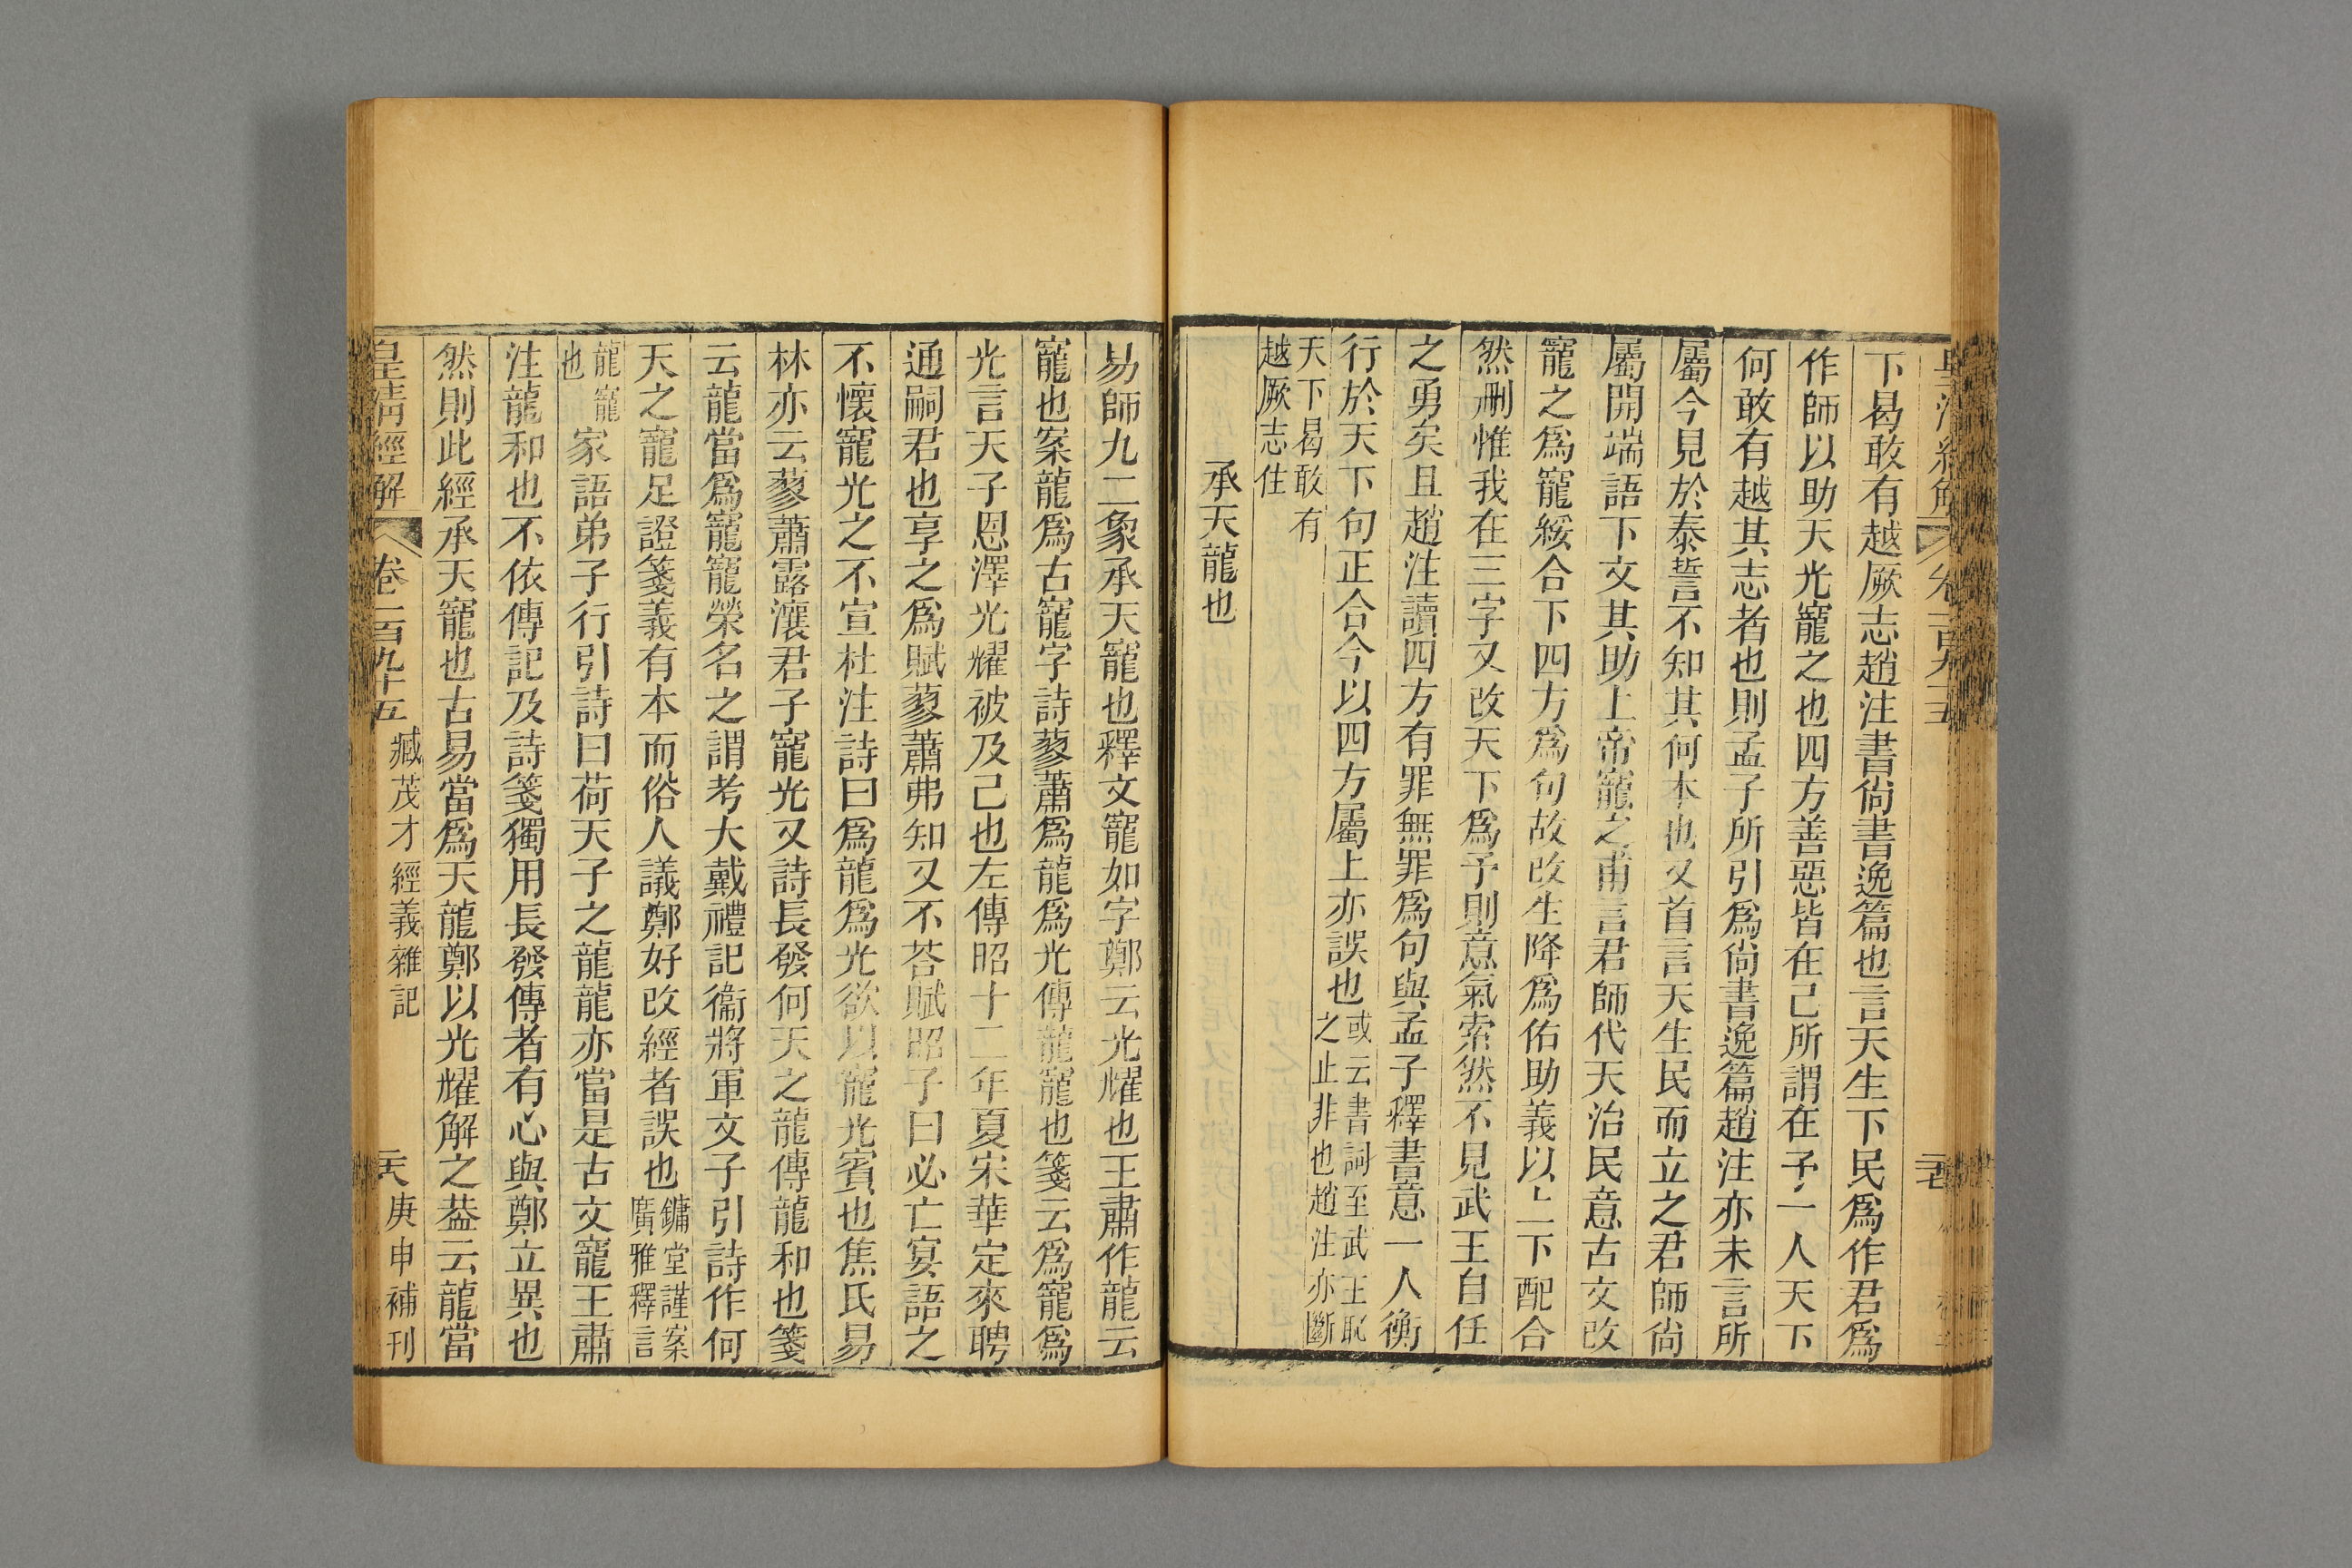 下曷敢有越厥志趙注書尙書逸篇也言天生下民爲作君爲
作師以助天光寵之也四方善惡皆在己所謂在予一人天下
何敢有越其志者也則孟子所引爲尙書逸篇趙注亦未言所
屬今見於泰誓不知其何本也又首言天生民而立之君師尙
屬開端語下文其助上帝寵之甫言君師代天治民意古文改
寵之爲寵綏合下四方爲句故改生降爲佑助義以上二下配合
然刪惟我在三字又改天下爲予則意氣索然不見武王自任
之勇矣且趙注讀四方有罪無罪爲句與孟子釋書意一人衡
行於天下句正合今以四方屬上亦誤也或云書詞至武王恥
之止非也趙注亦斷
天下曷敢有
越厥志住
承天龍也
易師九二象承天寵也釋文寵如字鄭云光耀也王肅作龍云
寵也案龍爲古寵字詩蓼蕭爲龍爲光傳龍寵也箋云爲寵爲
光言天子恩澤光耀被及己也左傳昭十二年夏宋華定來聘
通嗣君也享之爲賦蓼蕭弗知又不荅賦昭子曰必亡宴語之
不懷寵光之不宣杜注詩曰爲龍爲光欲以寵光賓也焦氏易
林亦云蓼蕭露瀼君子寵光又詩長發何天之龍傳龍和也箋
云龍當爲寵寵榮名之謂考大戴禮記衞將軍文子引詩作何
天之寵足證箋義有本而俗人議鄭好改經者誤也鏞堂謹案
廣雅釋言
龍寵
也
家語弟子行引詩曰荷天子之龍龍亦當是古文寵王肅
注龍和也不依傳記及詩箋獨用長發傳者有心與鄭立異也
然則此經承天寵也古易當爲天龍鄭以光耀解之葢云龍當
皇清經解
卷一百九十五
臧茂才經義雜記
庚申補刊